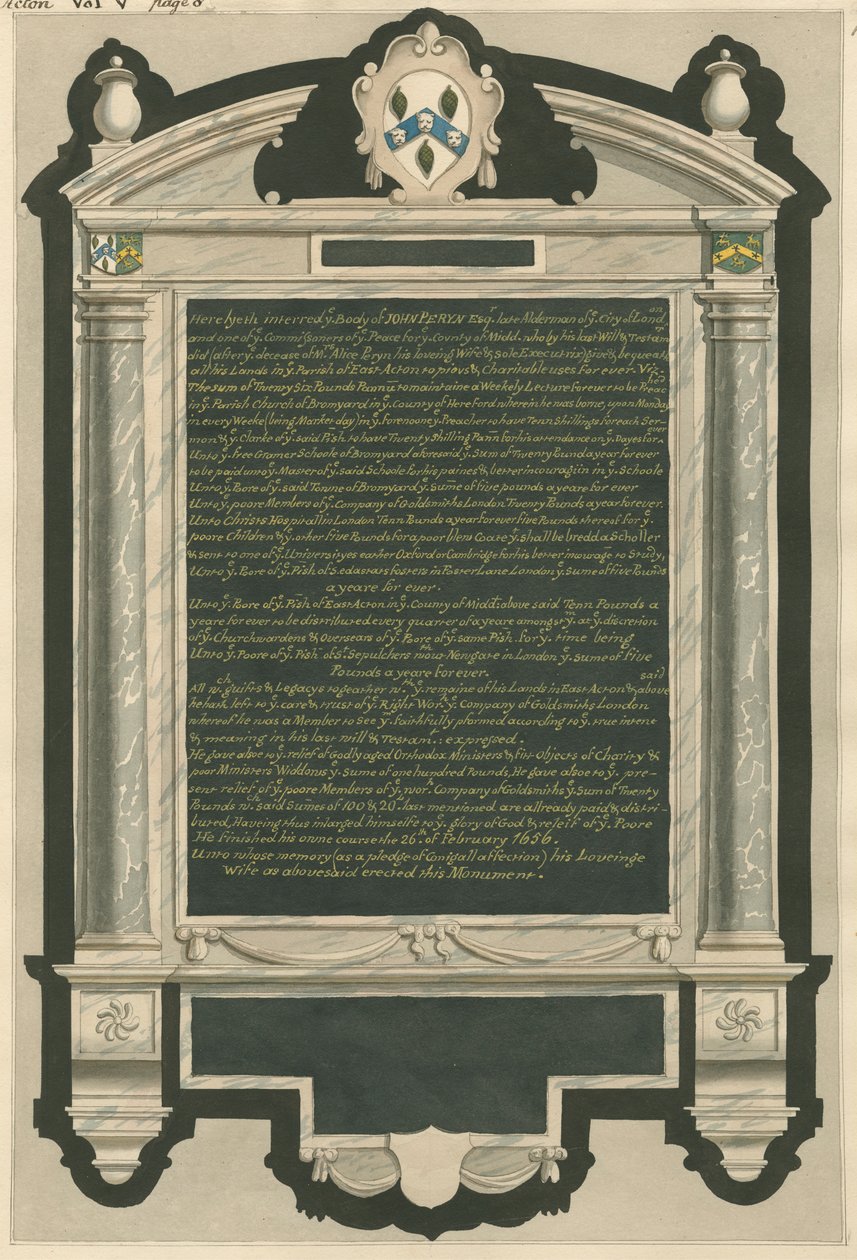 Acton Vol V page 8
Here lyeth interred yᵉ. Body of JOHN PERYN Esqʳ. late Alderman of yᵉ. City of Londᵒⁿ
and one of yᵉ. Commissoners of yᵉ. Peace for yᵉ. County of Midd. who by his last Will & Testamᵗ
did (after yᵉ. decease of Mʳˢ Alice Peryn his loveing Wife & sole Executrix) give & bequeath
all his Lands in yᵉ. Parish of East Acton to pious & Charitable uses for ever. Viz.
The sum of Twenty Six Pounds P annū. to maintaine a Weekely Lecture for ever to be Preacʰᵉᵈ
in yᵉ. Parish Church of Bromyard in yᵉ. County of Hereford wherein he was borne, upon Monday
in every Weeke (being Market day) in yᵉ. forenoone yᵉ. Preacher to have Tenn Shillings for each Ser-
mon & yᵉ. Clarke of yᵉ. said Pish. to have Twenty Shilling P ann for his attendance on yᵉ. Dayes for ever
Unto yᵉ. free Gramer Schoole of Bromyard aforesaid yᵉ. Sum of Twenty Pound a year for ever
to be paid unto yᵉ. Master of yᵉ. said Schoole for his paines & better incouragiin in yᵉ. Schoole
Unto yᵉ. Poore of yᵉ. said Towne of Bromyard yᵉ. Sum̄e of five pounds a yeare for ever
Unto yᵉ. poore Members of yᵉ. Company of Goldsmiths London Twenty Pounds a year for ever.
Unto Christs Hospitall in London Tenn Pounds a year for ever five Pounds thereof for yᵉ.
poore Children & yᵉ. other five Pounds for a poor blew Coate yᵗ. shall be bredd a Scholler
& sent to one of yᵉ. Universityes eather Oxford or Cambridge for his better incowagᵐ to Study,
Unto yᵉ. Poore of yᵉ. Pish of S. edastats fosters in Foster Lane London yᵉ. Sume of five Pounds
a yeare for ever.
Unto yᵉ. Poore of yᵉ. Pish of East Acton in yᵉ. County of Midd: above said Tenn Pounds a
yeare for ever to be distributed every quarter of a yeare amongst yᵐ. at yᵉ. discretion
of yᵉ. Churchwardens & Overseers of yᵉ. Poore of yᵉ. same Pish for yᵉ. time being
Unto yᵉ. Poore of yᵉ. Pish of Sᵗ. Sepulchers wᵗʰout Newgate in London yᵉ. sume of five
Pounds a yeare for ever.
All wᶜʰ. guifts & Legacys togeather wᵗʰ. yᵉ. remaine of his Lands in East Acton & above said
he hath left to yᵉ. care & trust of yᵉ. Right Worʰ. yᵉ. Company of Goldsmiths London
whereof he was a Member to see yᵐ. faithfully pformed according to yᵉ. true intent
& meaning in his last will & Testamᵗ.: expressed.
He gave alsoe to yᵉ. relief of Godly aged Orthodox Ministers & fitt Objects of Charity &
poor Ministers Widdows yᵉ. sume of one hundred Pounds, He gave alsoe to yᵉ. pre-
sent relief of yᵉ. poore Members of yᵉ. Worʰ. Company of Goldsmiths yᵉ. Sum of Twenty
Pounds wᶜʰ. said Sum̄es of 100 & 20. last mentioned are allready paid & distri-
buted, Haveing thus inlarged himselfe to yᵉ. glory of God & releif of yᵉ. Poore
He finished his owne course the 26ᵗʰ. of February 1656.
Unto whose memory (as a pledge of Conigall affection) his Loveinge
Wife as abovesaid erected this Monument.